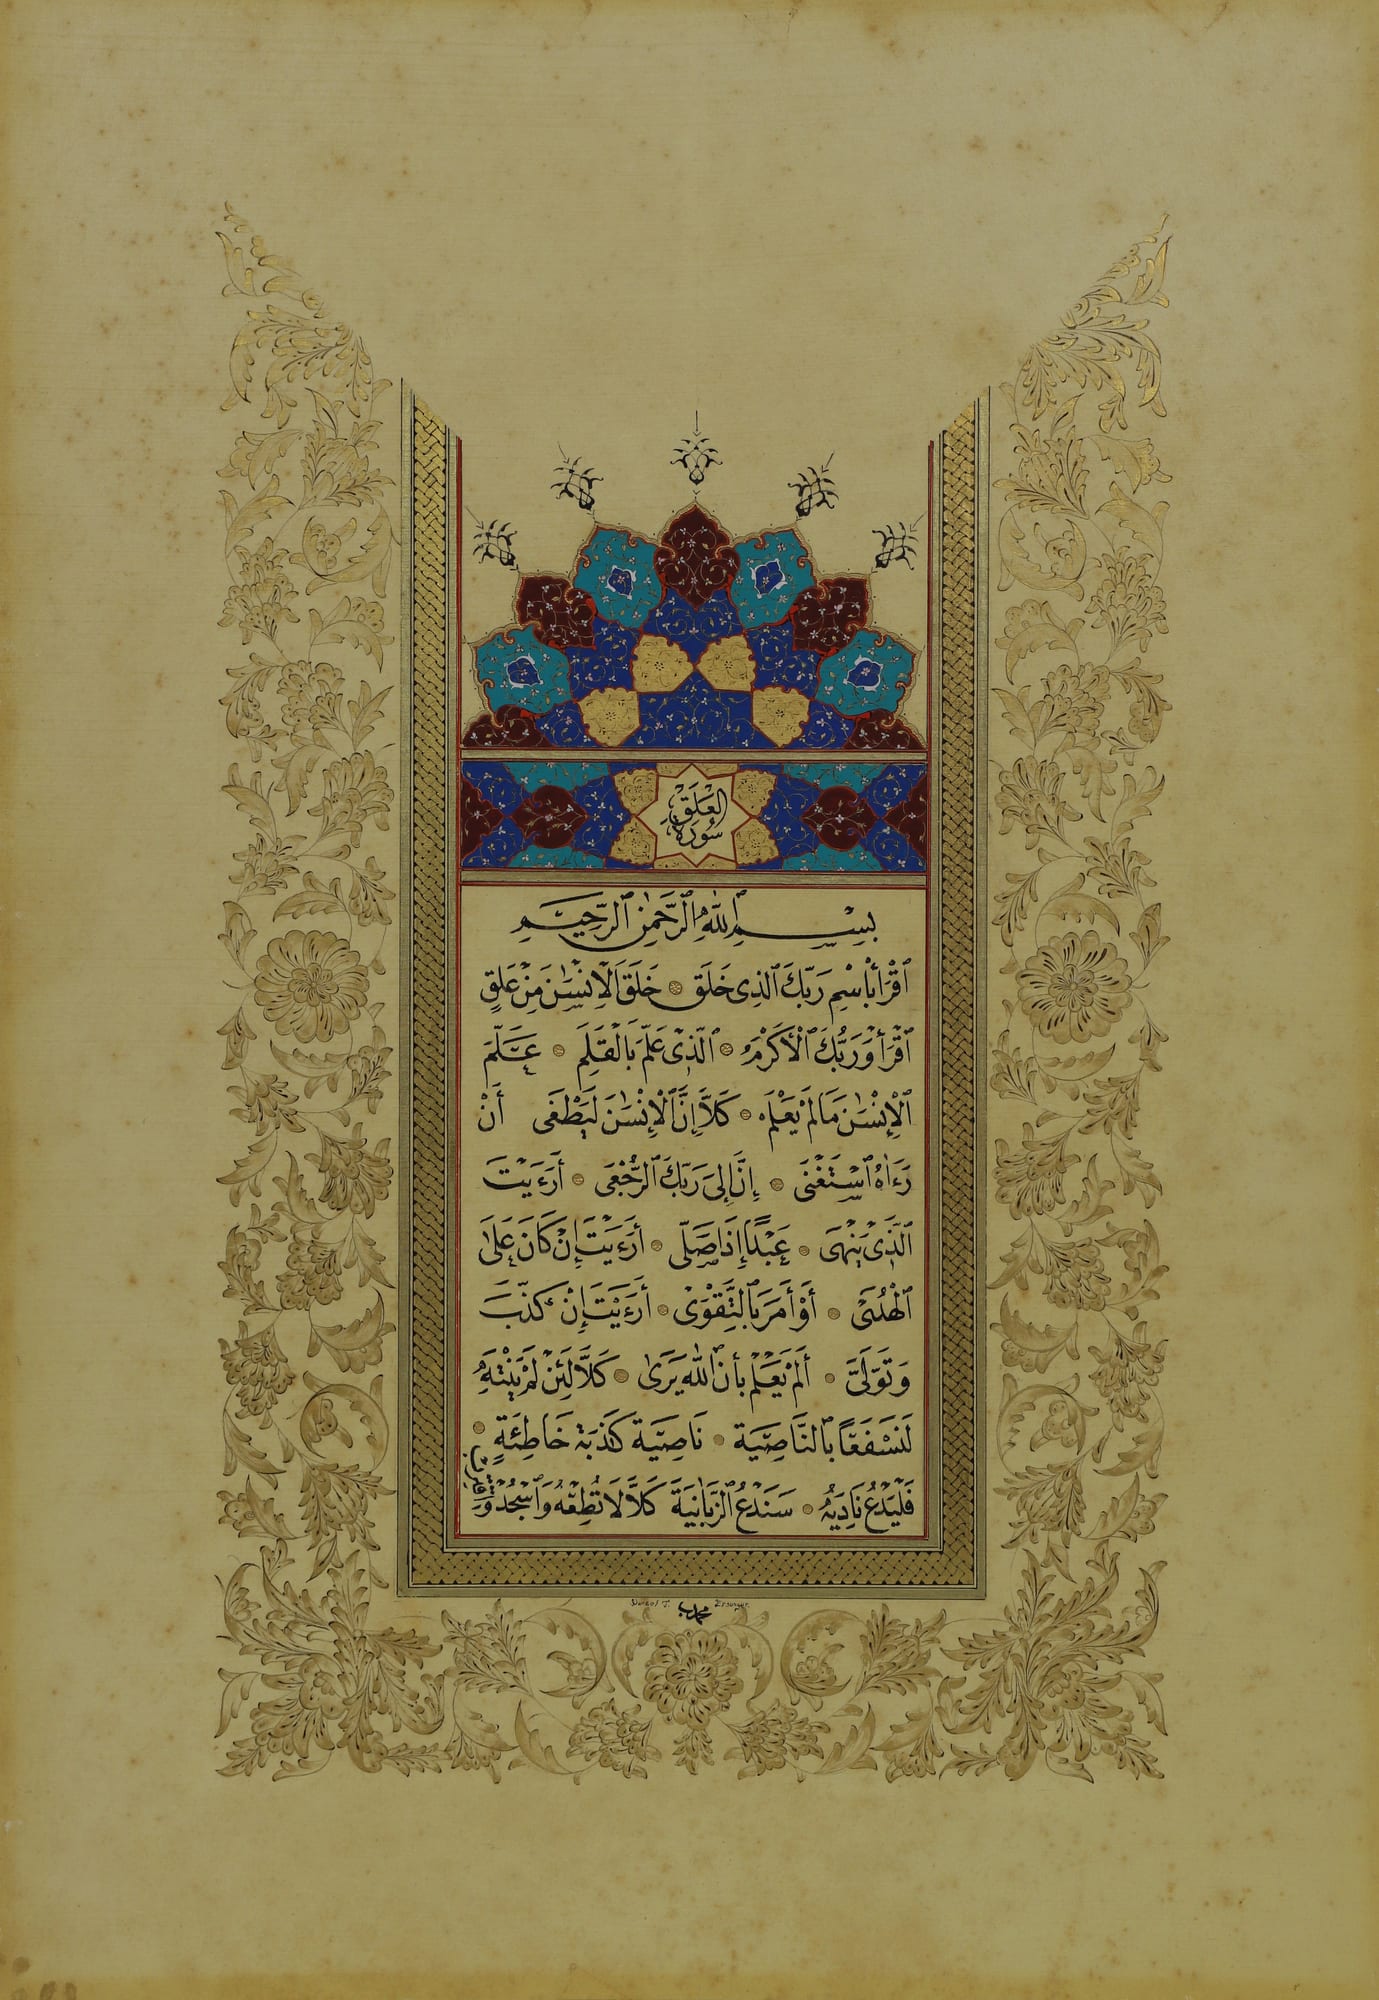 سورة العلق
بسم ٱلله ٱلرحمٰن ٱلرحيم
ٱقْرَأْ بِٱسْمِ رَبِّكَ ٱلَّذِى خَلَقَ ۝ خَلَقَ ٱلْإِنسَٰنَ مِنْ عَلَقٍ
ٱقْرَأْ وَرَبُّكَ ٱلْأَكْرَمُ ۝ ٱلَّذِى عَلَّمَ بِٱلْقَلَمِ ۝ عَلَّمَ
ٱلْإِنسَٰنَ مَا لَمْ يَعْلَمْ ۝ كَلَّا إِنَّ ٱلْإِنسَٰنَ لَيَطْغَى أَنْ
رَءَاهُ ٱسْتَغْنَى ۝ إِنَّ إِلَى رَبِّكَ ٱلرُّجْعَى ۝ أَرَءَيْتَ
ٱلَّذِى يَنْهَى ۝ عَبْدًا إِذَا صَلَّى ۝ أَرَءَيْتَ إِنْ كَانَ عَلَى
ٱلْهُدَى ۝ أَوْ أَمَرَ بِٱلتَّقْوَى ۝ أَرَءَيْتَ إِنْ كَذَّبَ
وَتَوَلَّى ۝ أَلَمْ يَعْلَمْ بِأَنَّ ٱللَّهَ يَرَى ۝ كَلَّا لَئِنْ لَمْ يَنْتَهِ
لَنَسْفَعًا بِٱلنَّاصِيَةِ ۝ نَاصِيَةٍ كَٰذِبَةٍ خَاطِئَةٍ ۝
فَلْيَدْعُ نَادِيَهُ ۝ سَنَدْعُ ٱلزَّبَانِيَةَ كَلَّا لَا تُطِعْهُ وَٱسْجُدْ وَٱقْتَرِب